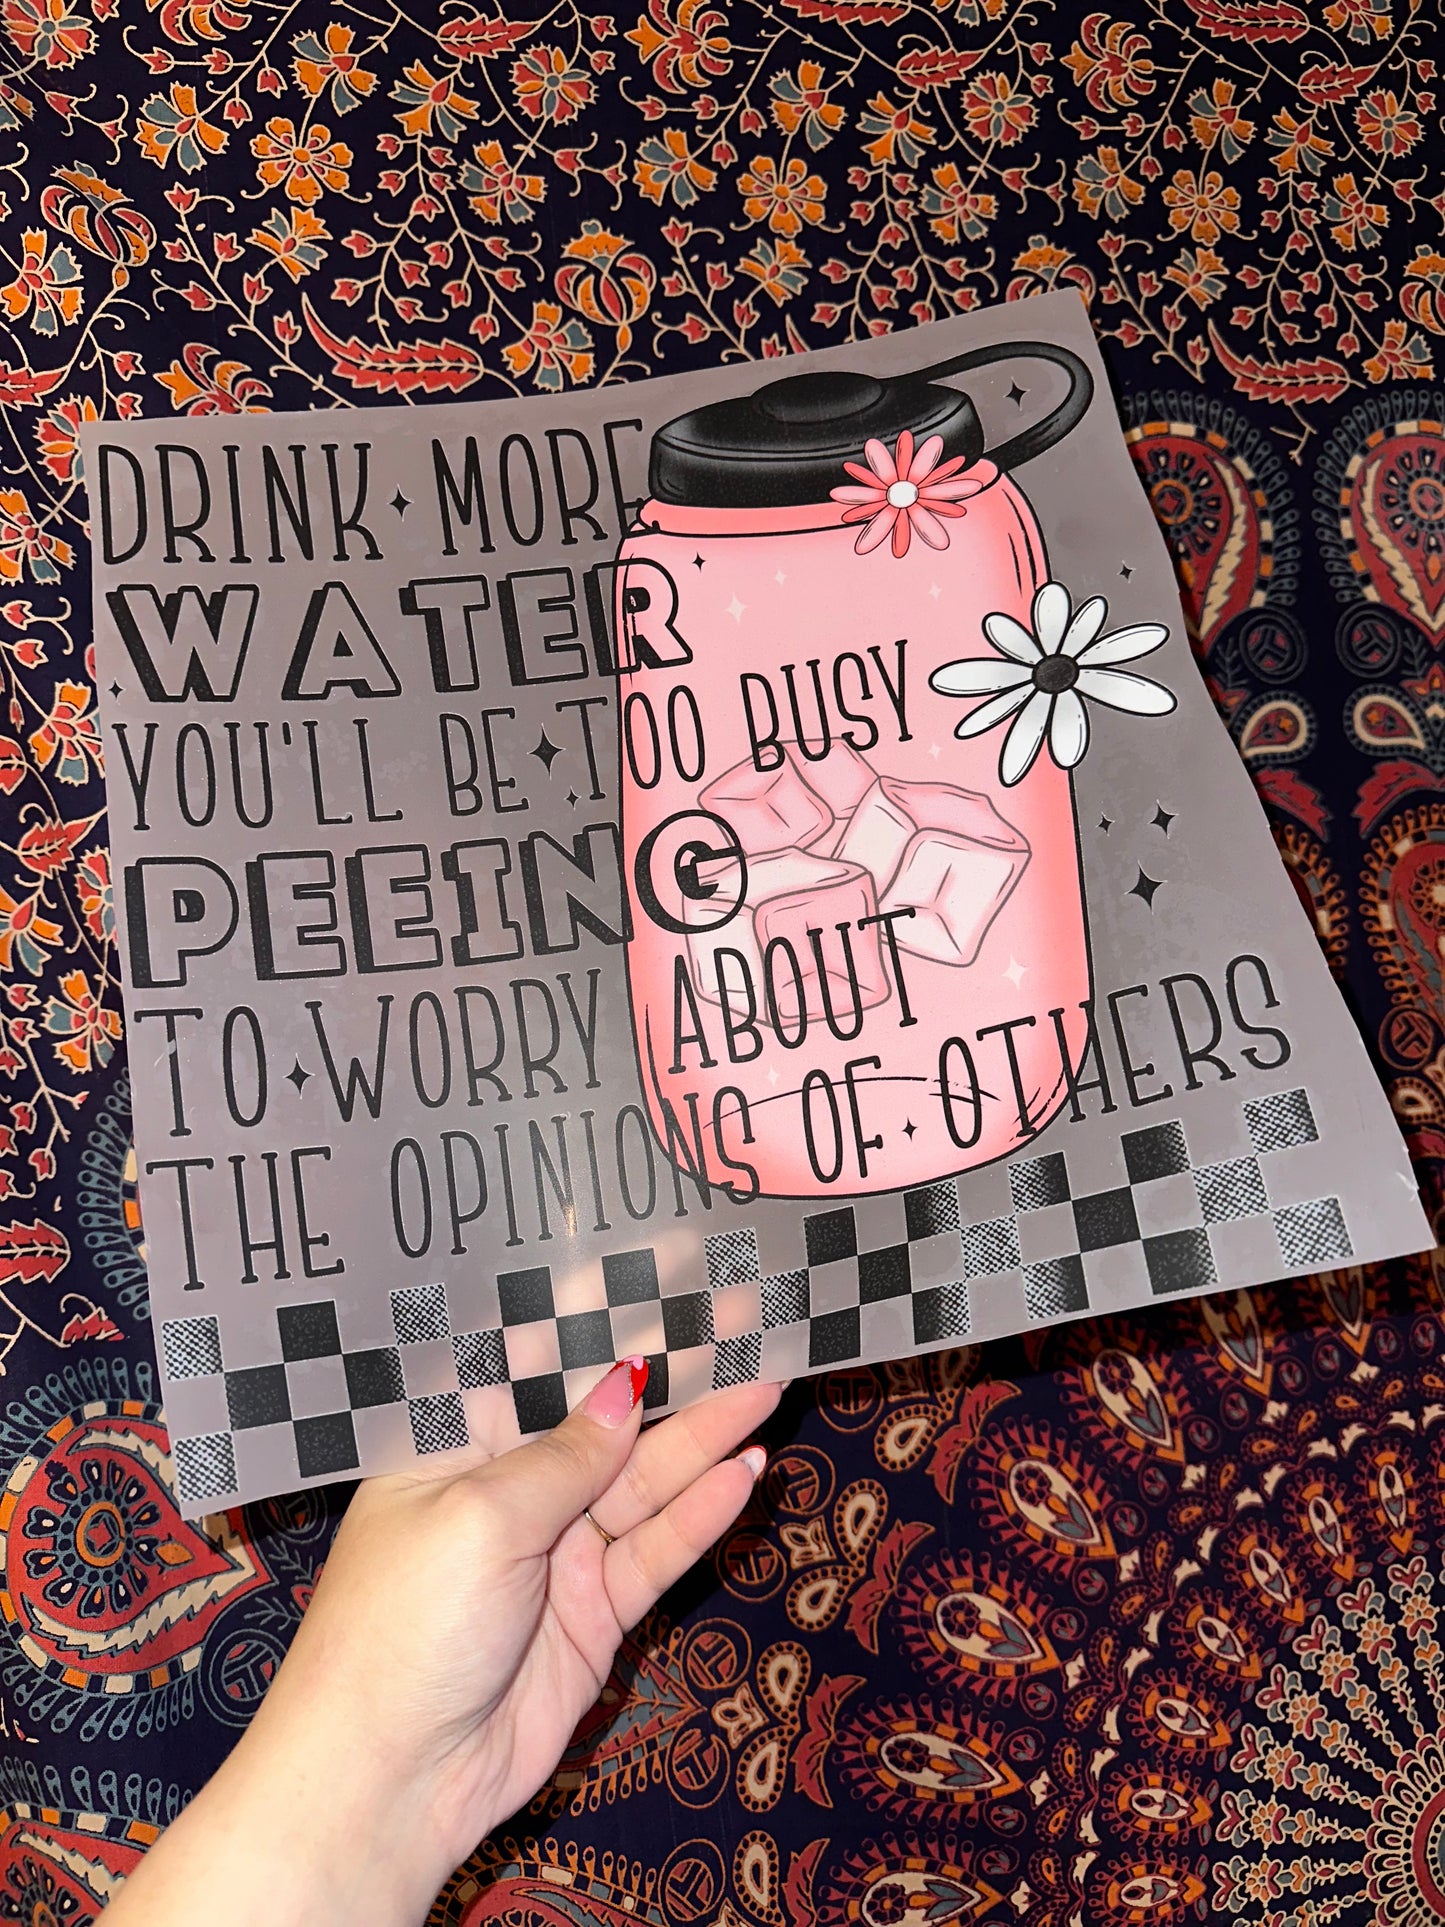 DRINK MORE
WATER
YOU'LL BE TOO BUSY
PEEING
TO WORRY ABOUT
THE OPINIONS OF OTHERS